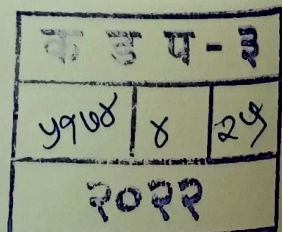 क ड प - ३
५१७४ ४ २५
२०२२